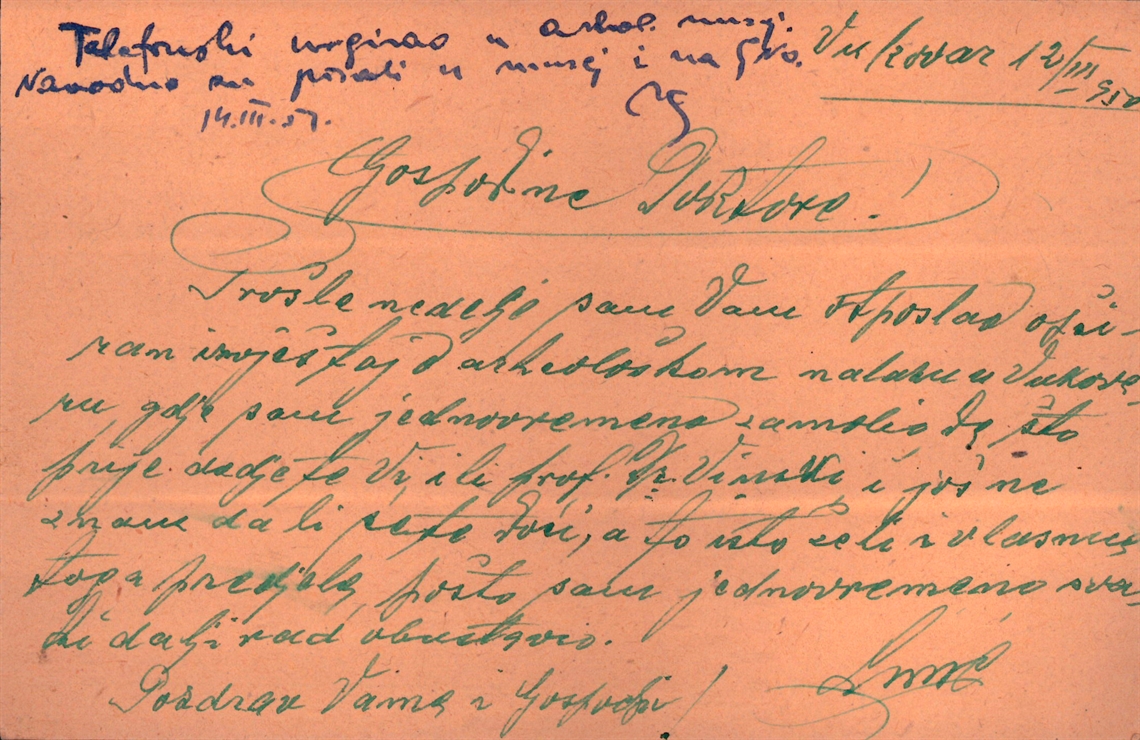 Telefonski urgirao u arheol. muzej.
Navodno su pisali u muzej i na GNO.
14.III.57.
Vukovar 12/III 957
Gospodine Doktore!
Prošle nedelje sam Vam otposlao opši-
ran izvještaj o arheološkom nalazu u Vukova-
ru, gdje sam jednovremeno zamolio da što
prije dodjete Vi, ili prof. Dr. Vinski, i još ne
znam da li ćete doći, a to isto želi i vlasnik
toga predjela, pošto sam jednovremeno sva-
ki dalji rad obustavio.
Pozdrav Vama i Gospodji!